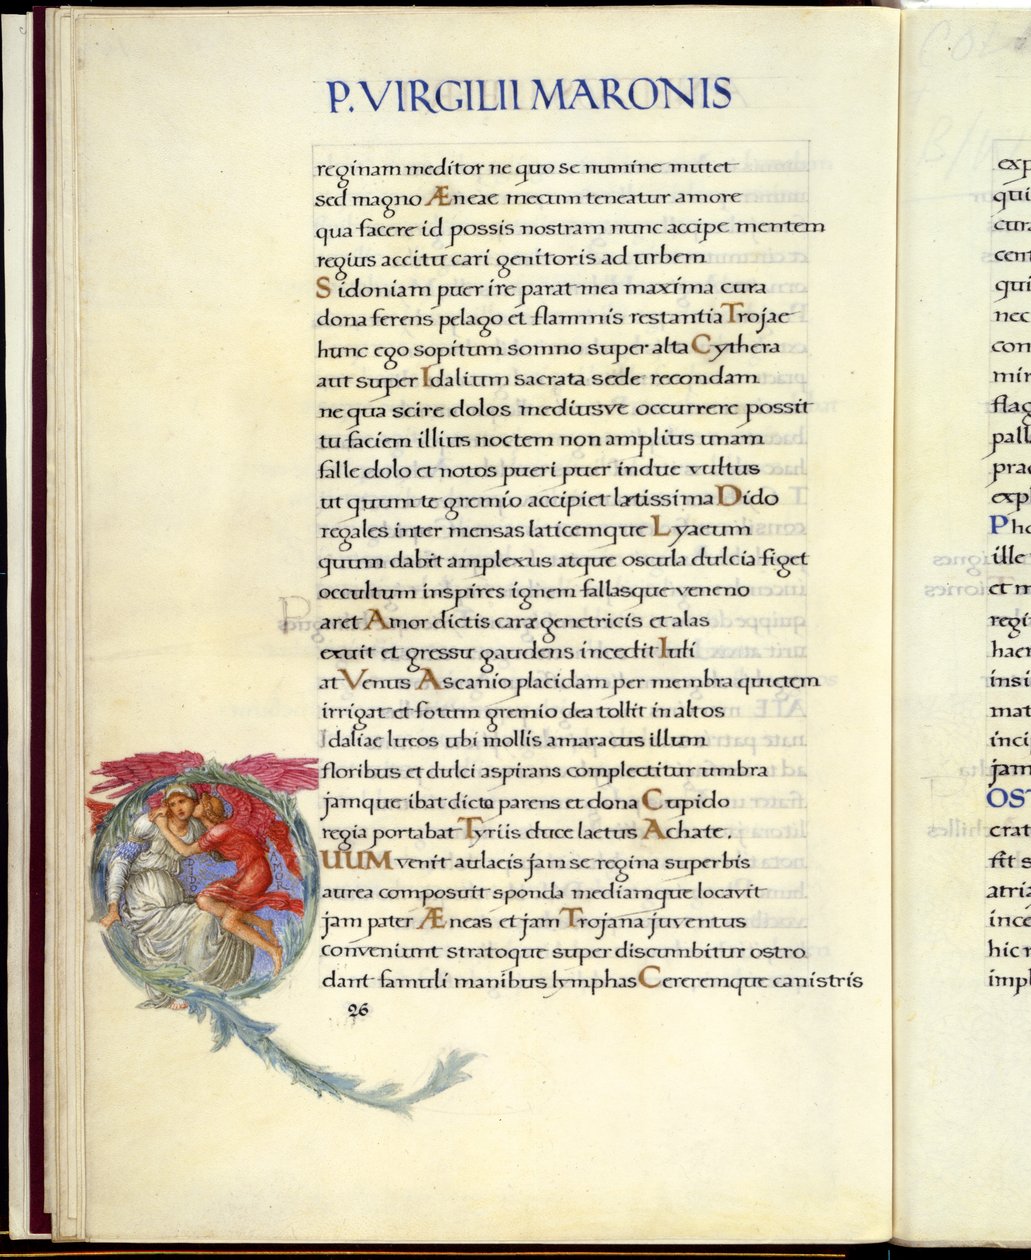 P. VIRGILII MARONIS
reginam meditor ne quo se numine mutet
sed magno Æneae mecum teneatur amore
qua facere id possis nostram nunc accipe mentem
regius accitu cari genitoris ad urbem
Sidoniam puer ire parat mea maxima cura
dona ferens pelago et flammis restantia Trojae
hunc ego sopitum somno super alta Cythera
aut super Idalium sacrata sede recondam
ne qua scire dolos mediusve occurrere possit
tu faciem illius noctem non amplius unam
falle dolo et notos pueri puer indue vultus
ut quum te gremio accipiet lætissima Dido
regales inter mensas laticemque Lyaeum
quum dabit amplexus atque oscula dulcia figet
occultum inspires ignem fallasque veneno
aret Amor dictis caræ genetricis et alas
exuit et gressu gaudens incedit Iuli
at Venus Ascanio placidam per membra quietem
irrigat et fotum gremio dea tollit in altos
Idaliae lucos ubi mollis amaracus illum
floribus et dulci aspirans complectitur umbra
jamque ibat dicto parens et dona Cupido
regia portabat Tyriis duce laetus Achate.
QUUM venit aulaeis jam se regina superbis
aurea composuit sponda mediamque locavit
jam pater Æneas et jam Trojana juventus
conveniunt stratoque super discumbitur ostro
dant famuli manibus lymphas Cereremque canistris
26
DIDO
AMOR
exp
qui
cura
cent
qui
nec
con
mir
flag
pall
prae
expl
Pho
ille
et m
regi
haer
insi
mat
inci
jam
OST
crat
fit s
atria
ince
hic n
impl